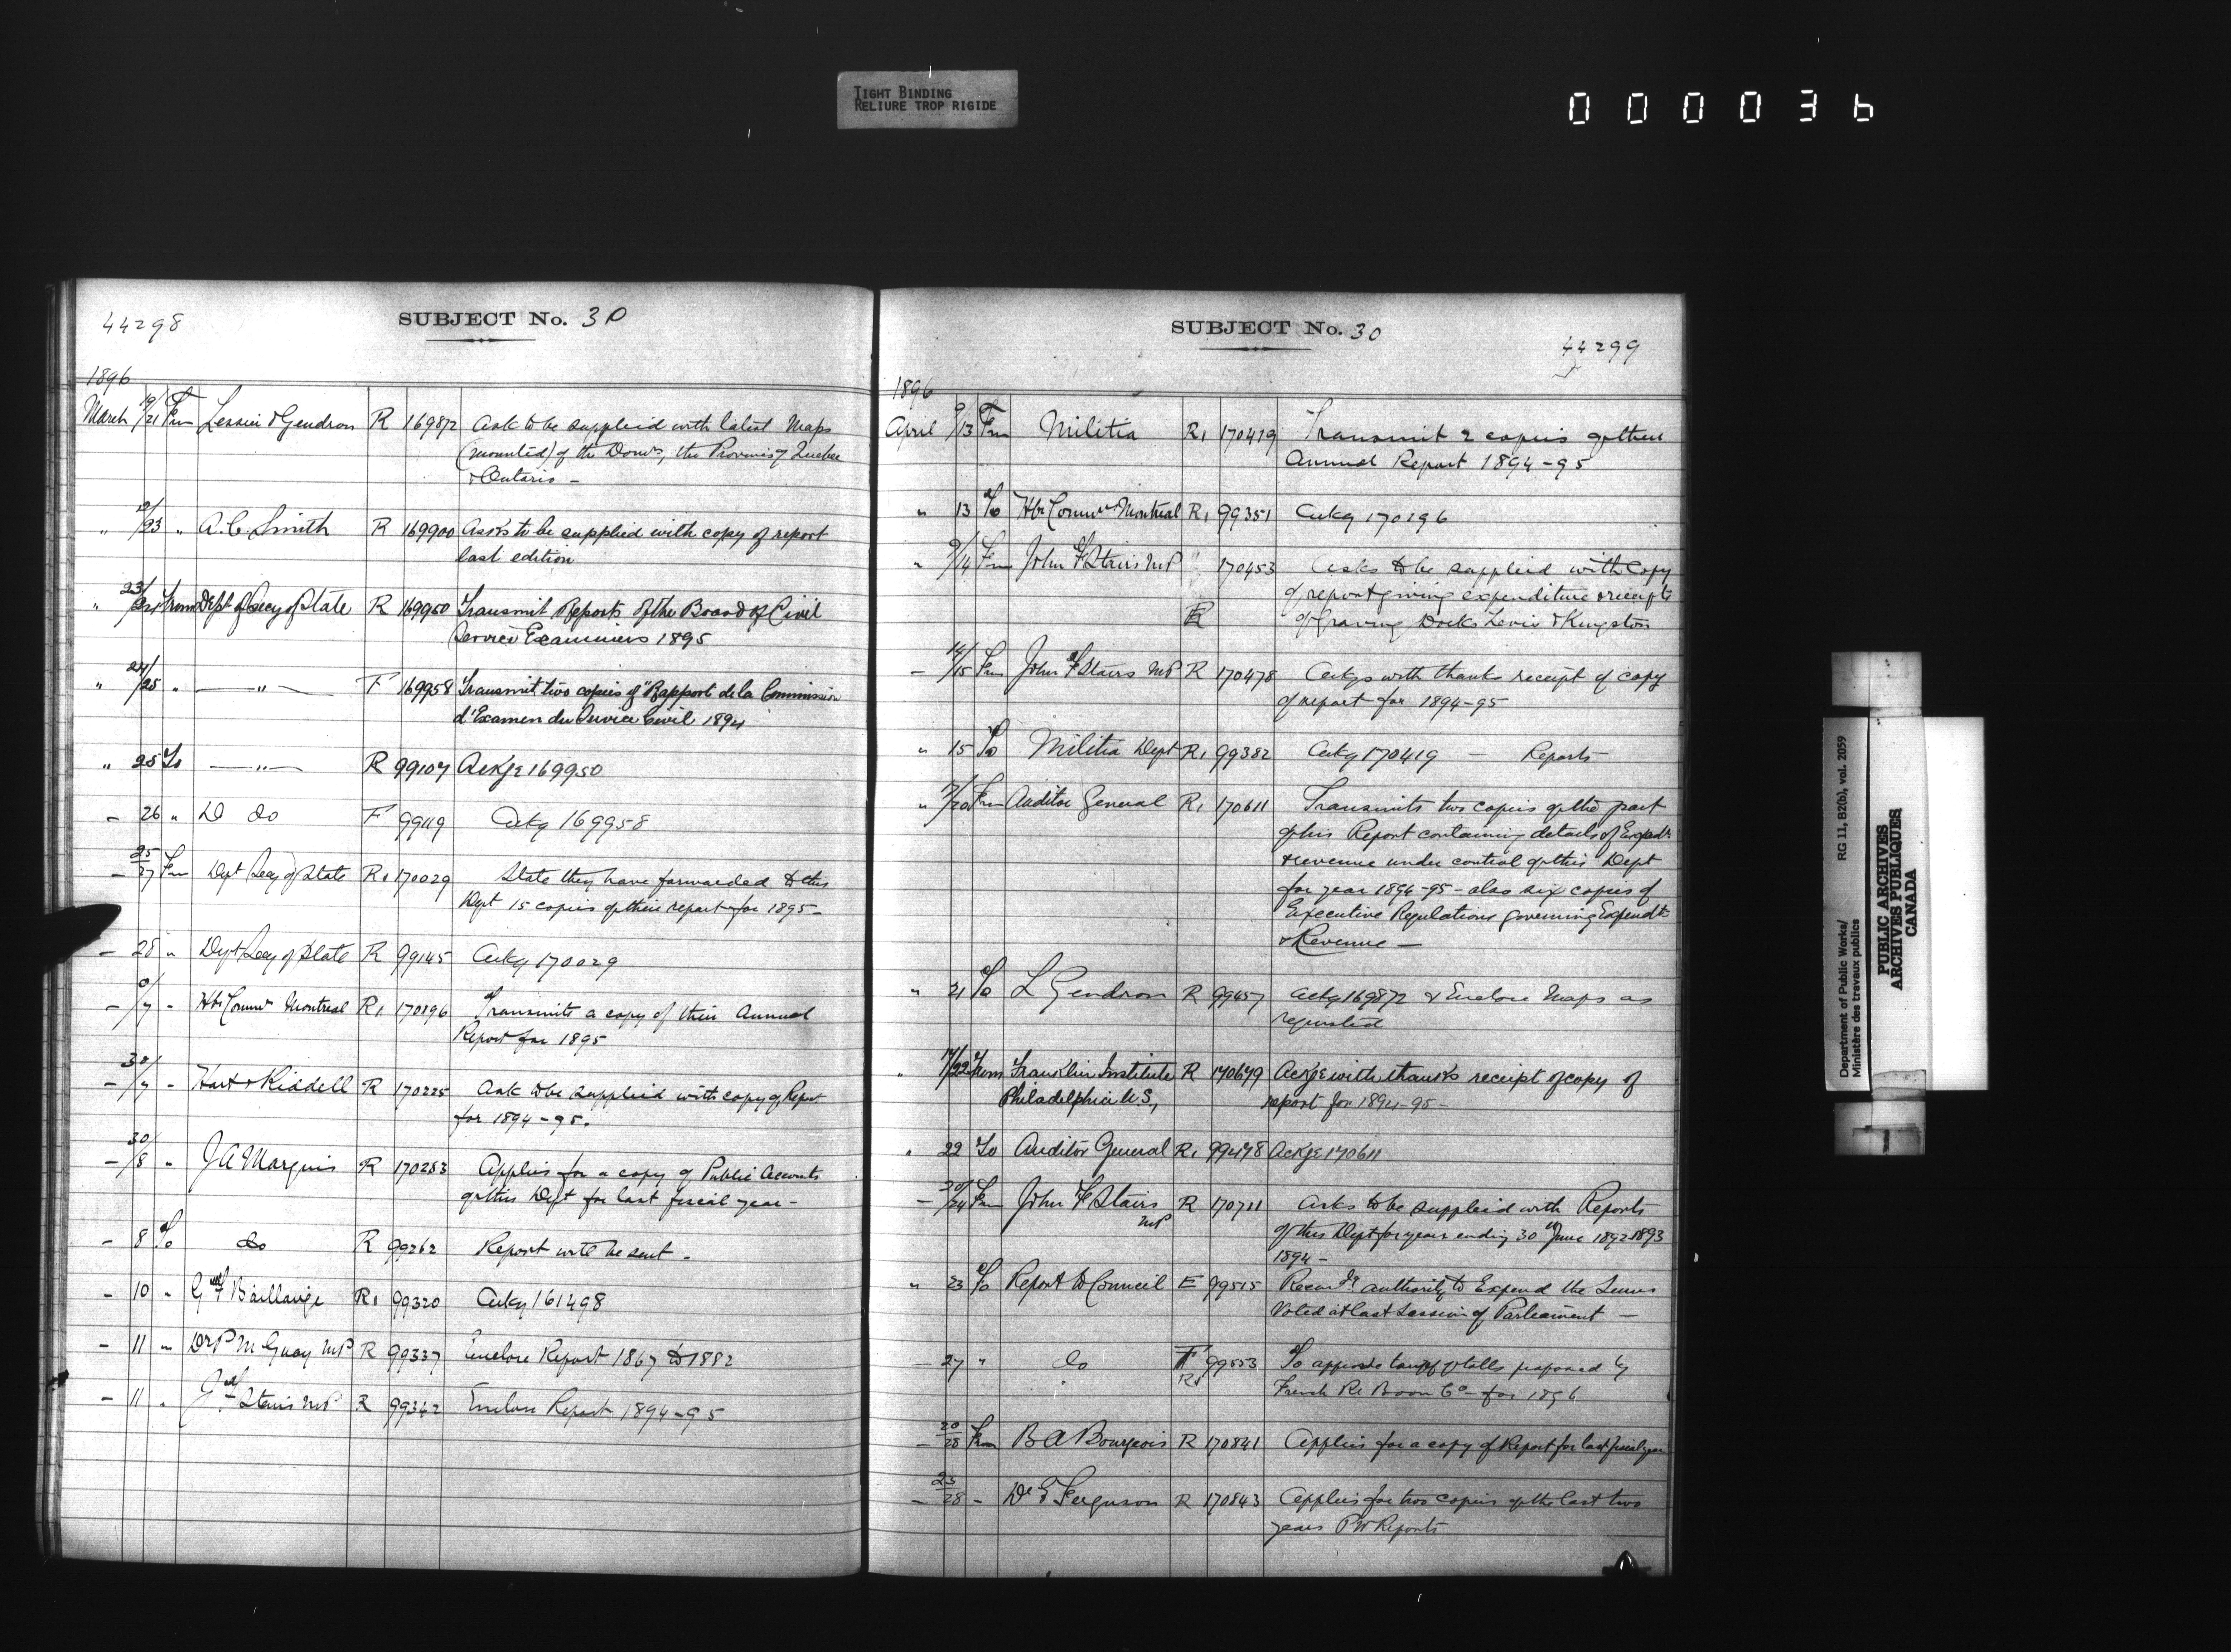 TIGHT BINDING
RELIURE TROP RIGIDE
000036
44298
SUBJECT No. 30
1896
March 19/21 Frm Lessier & Gendron R 169872 Ask to be supplied with latest Maps
(mounted) of the Domn, the Provinces of Quebec
& Ontario -
" 19/23 " A.C. Smith R 169900 Asks to be supplied with copy of report
last edition
" 23/24 From Dept of Secy of State R 169950 Transmit Reports of the Board of Civil
Service Examiners 1895
" 24/25 " —"— F 169958 Transmit two copies of "Rapport de la Commission
d'Examen du Service Civil 1894
" 25 To —"— R 99107 Ackge 169950
- 26 " D do F 99119 Ackg 169958
- 25/27 Frm Dept Secy of State R1 170029 State they have forwarded to this
Dept 15 copies of their report for 1895 -
- 28 " Dept Secy of State R 99145 Ackg 170029
- /7 - Hbr Commrs Montreal R1 170196 Transmits a copy of their Annual
Report for 1895
- 30/7 - Hart & Riddell R 170225 Ask to be supplied with copy of Report
for 1894-95.
- 30/8 " J A Marquis R 170253 Applies for a copy of Public Accounts
of this Dept for last fiscal year -
- 8 To do R 99262 Report will be sent -
- 10 " G F Baillairgé R1 99320 Ackg 161498
- 11 " Dr P M Guay MP R 99337 Enclose Report 1867 to 1882
- 11 " J F Stairs MP R 99342 Enclose Report 1894-95
SUBJECT No. 30
44299
1896
April 9/13 Frm Militia R1 170419 Transmit 2 copies of their
Annual Report 1894-95
" 13 To Hbr Commrs Montreal R1 99351 Ackg 170196
" 9/14 Frm John F Stairs MP 170453 Asks to be supplied with copy
of report giving expenditure & receipts
R of Graving Docks Levis & Kingston
- 14/15 Frm John F Stairs MP R 170478 Ackgs with thanks receipt of copy
of report for 1894-95
" 15 To Militia Dept R1 99382 Ackg 170419 — Reports
" 17/20 Frm Auditor General R1 170611 Transmits two copies of the part
of his Report containing details of Expdre
& revenue under control of this Dept
for year 1894-95 - also six copies of
Executive Regulations governing Expendre
& Revenue —
" 21 To L Gendron R 99457 Ackg 169872 & Enclose Maps as
requested
" 17/22 From Franklin Institute R 170679 Ackge with thanks receipt of copy of
Philadelphia U.S, report for 1894-95 -
" 22 To Auditor General R1 99478 Ackge 170611
- 20/24 Frm John F Stairs R 170711 Asks to be supplied with Reports
MP of this Dept for year ending 30th June 1892 1893
1894 -
" 23 To Report to Council E 99515 Recomdg authority to Expend the Sums
Voted at last Session of Parliament —
- 27 " do F 99553 To approve tariff of tolls proposed by
R1 French Rr Boom Co - for 1896
- 20/28 Frm B A Bourgeois R 170841 Applies for a copy of Report for last fiscal year
- 23/28 - Dr Ferguson R 170843 Applies for two copies of the last two
years PW Reports
Department of Public Works/
Ministère des travaux publics
RG 11, B2(b), vol. 2059
PUBLIC ARCHIVES
ARCHIVES PUBLIQUES
CANADA